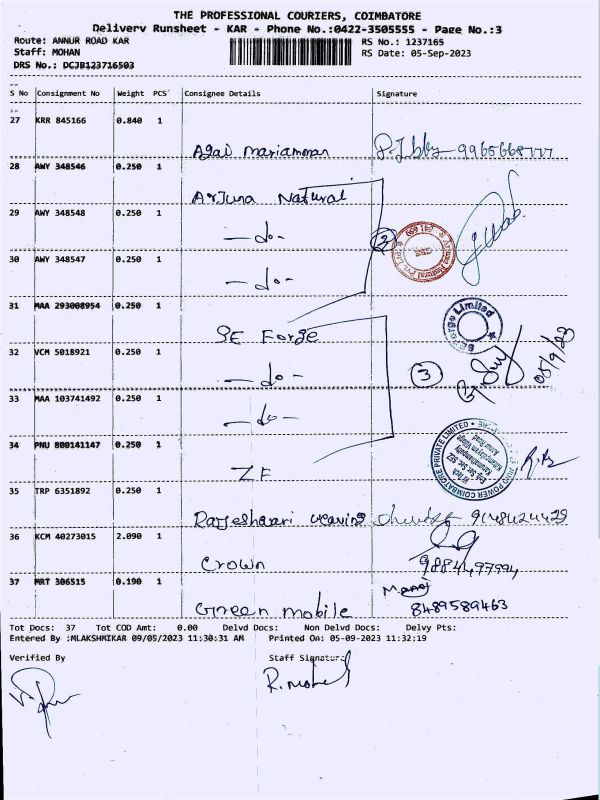 THE PROFESSIONAL COURIERS, COIMBATORE
Delivery Runsheet - KAR - Phone No.:0422-3505555 - Page No.:3
Route: ANNUR ROAD KAR RS No.: 1237165
Staff: MOHAN RS Date: 05-Sep-2023
DRS No.: DCJB123716503
S No Consignment No Weight PCS Consignee Details Signature
27 KRR 845166 0.840 1
Agai Mariamman
28 AWY 348546 0.250 1
Arjuna Natural
29 AWY 348548 0.250 1
- do -
30 AWY 348547 0.250 1
- do -
31 MAA 293008954 0.250 1
SE Forge Limited
SE Forge
32 VCM 5018921 0.250 1
- do - 3 05/9/23
33 MAA 103741492 0.250 1
- do -
34 PNU 800141147 0.250 1
ZF
35 TRP 6351892 0.250 1
Rajeshwari weaving
36 KCM 40273015 2.090 1
Crown 9884497994
37 MRT 306515 0.190 1
Green mobile 8489589463
Tot Docs: 37 Tot COD Amt: 0.00 Delvd Docs: Non Delvd Docs: Delvy Pts:
Entered By :MLAKSHMIKAR 09/05/2023 11:30:31 AM Printed On: 05-09-2023 11:32:19
Verified By Staff Signature